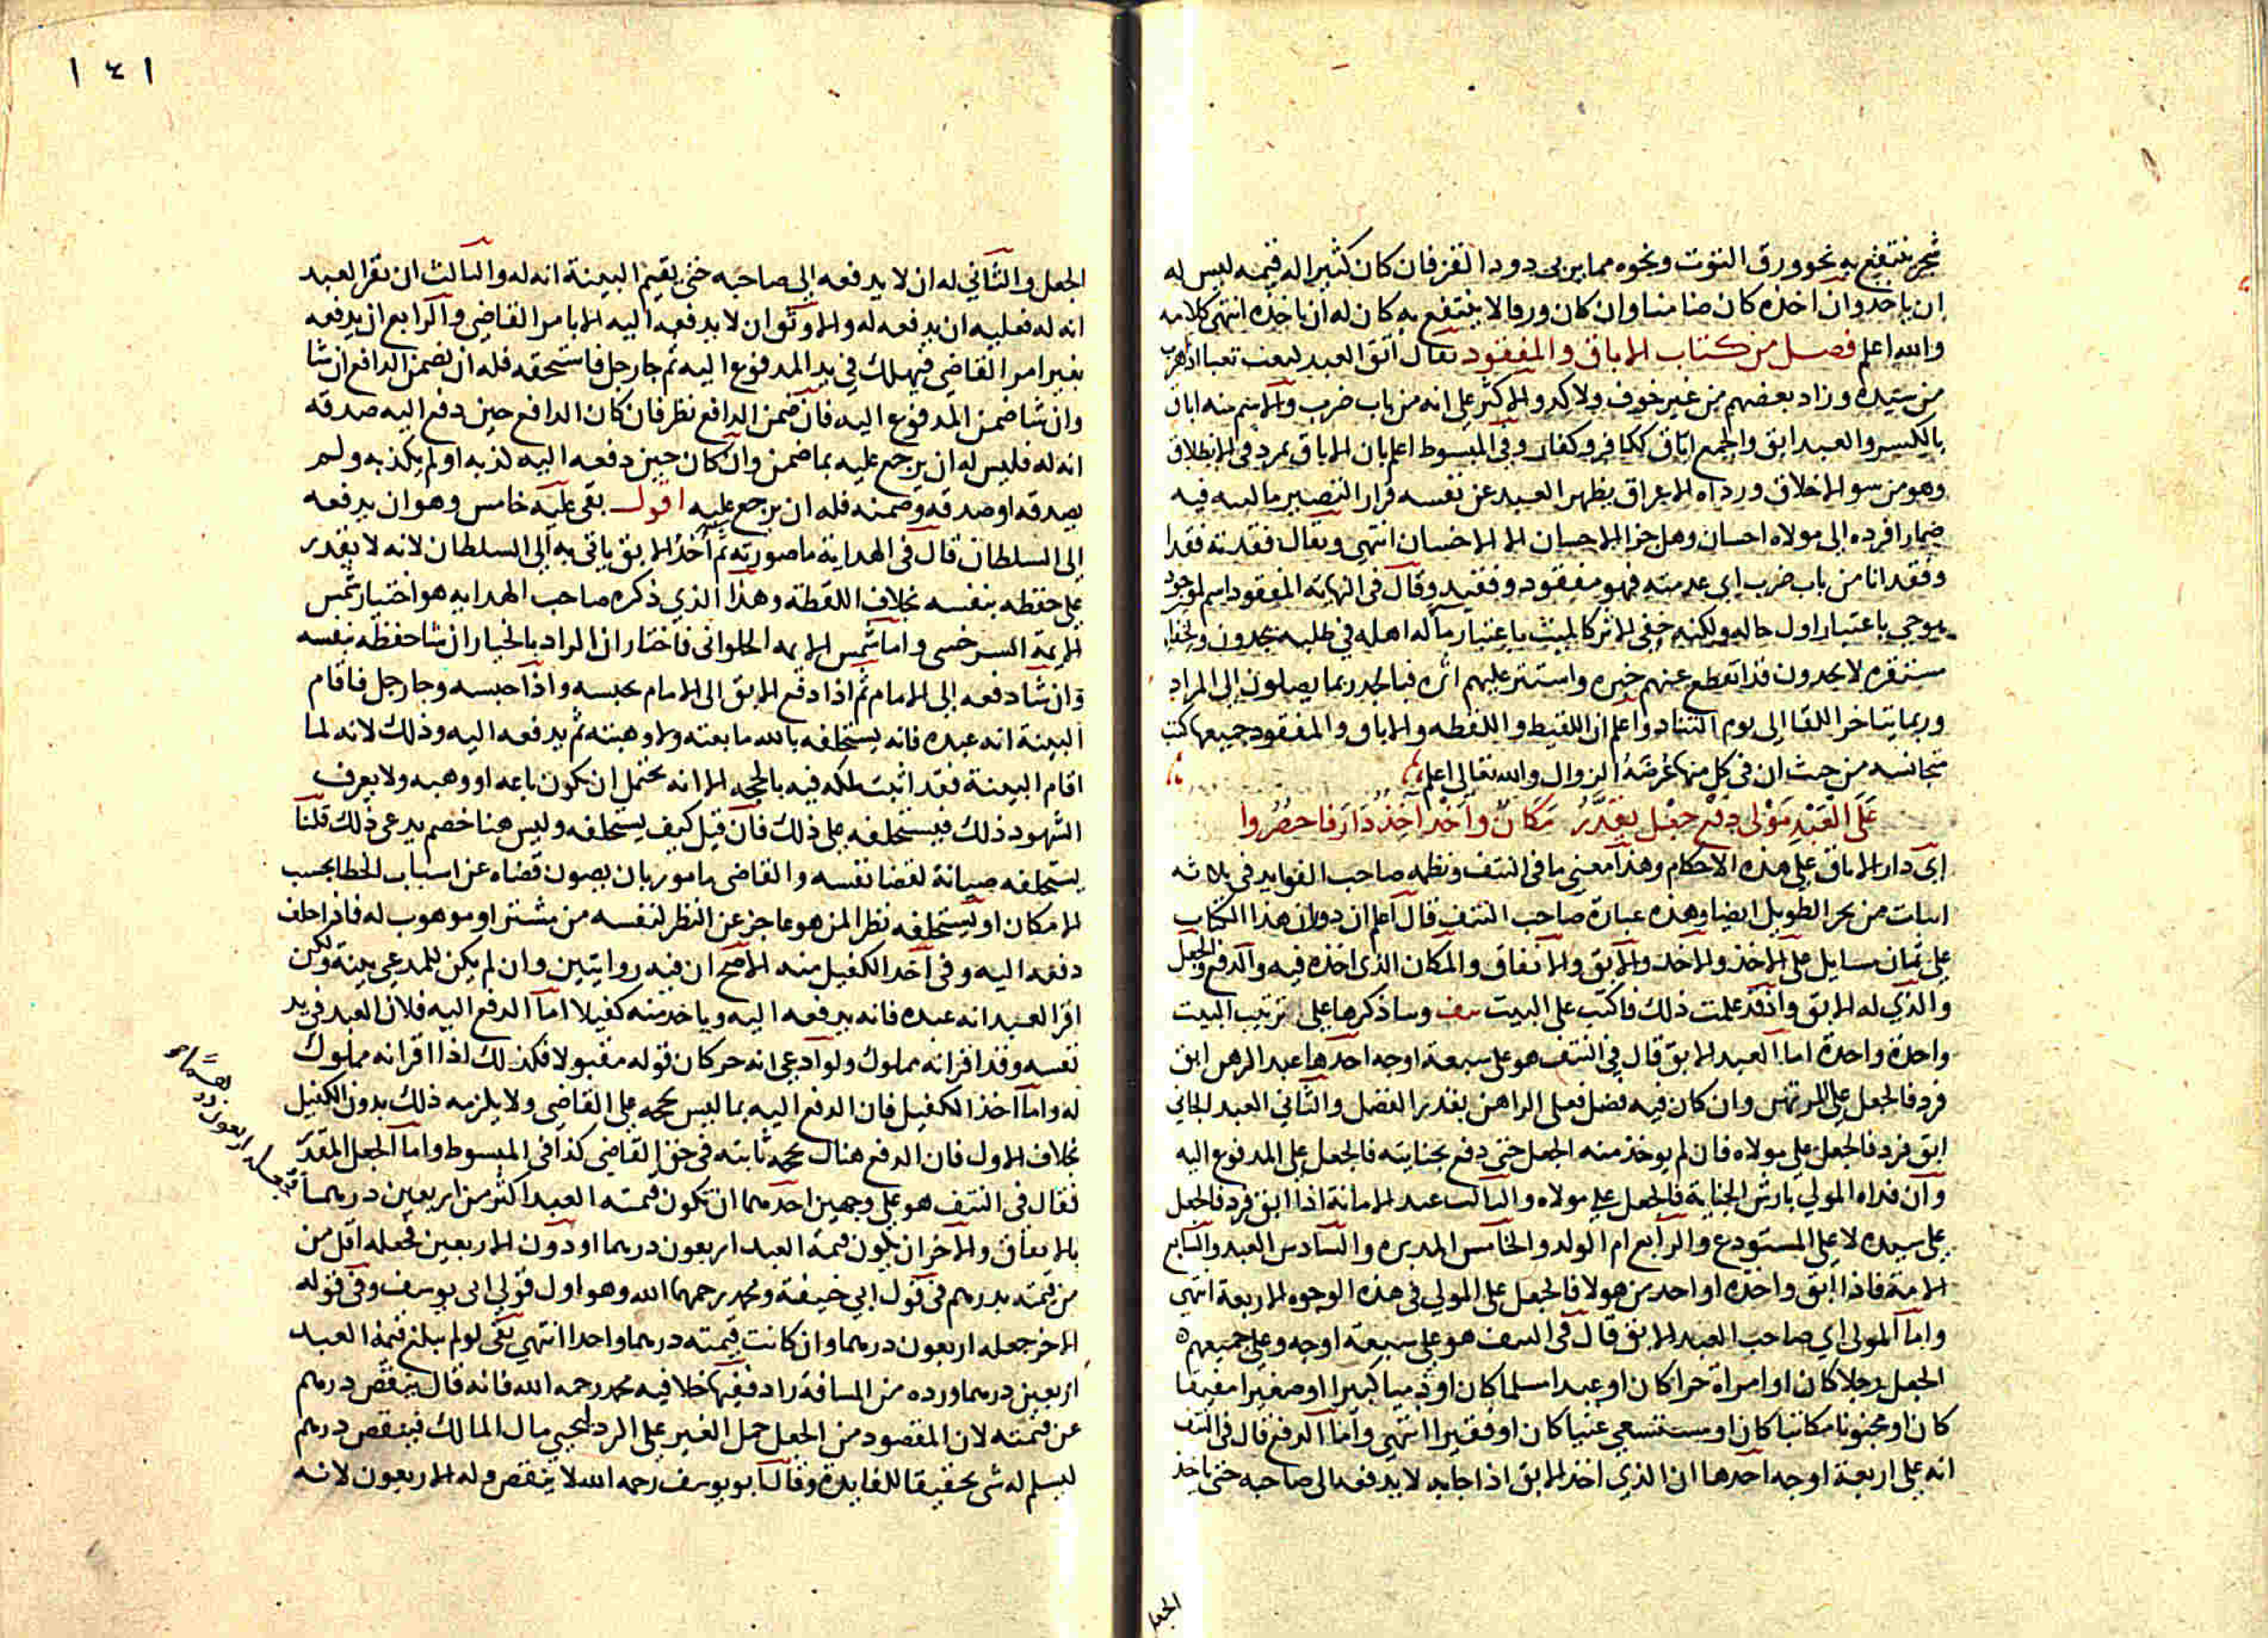 شجر ينتفع به نحو ورق التوت ونحوه مما يربى دود القز فان كان كثيرا له قيمه ليس له
ان ياخذ وان اخذه كان ضامنا وان كان ورقا لا ينتفع به كان له ان ياخذه انتهى كلامه
والله اعلم فصل من كتاب الاباق والمفقود يقال ابق العبد اذا هرب
من سيده وزاد بعضهم من غير خوف ولا كد والاكثر على انه من باب ضرب والاسم منه اباق
بالكسر والعبد ابق والجمع اباق ككافر وكفار وفي المبسوط اعلم بان الاباق تمرد في الانطلاق
وهو من سو الاخلاق ورداه الاعراق يظهر العبد عن نفسه فرارا لتصير ماليه فيه
ضمارا فرده الى مولاه احسان وهل جزا الاحسان الا الاحسان انتهى ويقال فقدته فقدا
وفقدانا من باب ضرب اي عدمته فهو مفقود وفقيد وقال في النهاية المفقود اسم لموجود
هو حي باعتبار اول حاله ولكنه خفي الاثر كالميت باعتبار ماله اهله في طلبه يجدون ولخفا
مستقره لا يجدون قد انقطع عنهم خبره واستتر عليهم اثره فبالجد ربما يصلون الى المراد
وربما يتاخر اللقا الى يوم التناد واعلم ان اللقيط واللقطه والاباق والمفقود جميعها كتب
متجانسه من حيث ان في كل منها عرضة الزوال والله تعالى اعلم
على العبد مولى دفع جعل يقدر مكان واخذ اخذ دار فاحصروا
اى دار الاباق على هذه الاحكام وهذا معنى ما في النتف ونظمه صاحب الفوايد في ثلاثه
ابيات من بحر الطويل ايضا وهذه عبارة صاحب النتف قال اعلم ان دوران هذا الكتاب
على ثمان مسايل على الاخذ والاخذ والابق والانفاق والمكان الذي اخذه فيه والدفع والجعل
والذي له الابق واذ قد علمت ذلك فاكتب على البيت وساذكرها على ترتيب البيت
واحدة واحدة اما العبد الابق قال في النتف هو على سبعة اوجه احدها عبد الرهن ابق
فرد فالجعل على المرتهن وان كان فيه فضل فعلى الراهن بقدر الفضل والثاني العبد الجاني
ابق فرد فالجعل على مولاه فان لم يوخذ منه الجعل حتى دفع بجنايته فالجعل على المدفوع اليه
وان فداه المولى بارش الجناية فالجعل على مولاه والثالث عبد الامانة اذا ابق فرد فالجعل
على سيده لا على المستودع والرابع ام الولد والخامس المدبره والسادس العبد والسابع
الامة فاذا ابق واخذه او احد من هولا فالجعل على المولى في هذه الوجوه الاربعة انتهى
واما المولى اي صاحب العبد الابق قال في النتف هو على سبعة اوجه وعلى جميعهم
الجعل رجلا كان او امراة حرا كان او عبدا مسلما كان او ذميا كبيرا او صغيرا مفيقا
كان او مجنونا مكاتبا كان او مستسعى غنيا كان او فقيرا انتهى واما الدفع قال في النتف
انه على اربعة اوجه احدها ان الذي اخذ الابق اذا جا به لا يدفعه الى صاحبه حتى ياخذ
الجعل
١٤١
الجعل والثاني له ان لا يدفعه الى صاحبه حتى يقيم البينة انه له والثالث ان يقر العبد
انه له فعليه ان يدفعه له والاوثق ان لا يدفعه اليه الا بامر القاضي والرابع ان يدفعه
بغير امر القاضي فيهلك في يد المدفوع اليه ثم جا رجل فاستحقه فله ان يضمن الدافع ان شا
وان شا ضمن المدفوع اليه فان ضمن الدافع نظر فان كان الدافع حين دفع اليه صدقه
انه له فليس له ان يرجع عليه بما ضمن وان كان حين دفعه اليه كذبه او لم يكذبه ولم
يصدقه او صدقه وضمنه فله ان يرجع عليه اقول بقى عليه خامس وهو ان يدفعه
الى السلطان قال في الهداية ما صورته ثم آخذ الابق ياتي به الى السلطان لانه لا يقدر
على حفظه بنفسه بخلاف اللقطة وهذا الذي ذكره صاحب الهدايه هو اختيار شمس
الايمة السرخسي واما شمس الايمه الحلواني فاختار ان الراد بالخيار ان شا حفظه بنفسه
وان شا دفعه الى الامام ثم اذا دفع الابق الى الامام يحبسه واذا حبسه وجا رجل فاقام
البينة انه عبده فانه يستحلفه بالله ما بعته ولا وهبته ثم يدفعه اليه وذلك لانه لما
اقام البينة فقد اثبت ملكه فيه بالحجه الا انه يحتمل ان يكون باعه او وهبه ولا يعرف
الشهود ذلك فيستحلفه على ذلك فان قيل كيف يستحلفه وليس هنا خصم يدعي ذلك قلنا
يستحلفه صيانة لقضا نفسه والقاضي مامور بان يصون قضاه عن اسباب الخطا بحسب
الامكان او يستحلفه نظرا لمن هو عاجز عن النظر لنفسه من مشتر او موهوب له فاذا حلف
دفعه اليه وفي اخذ الكفيل منه الاصح ان فيه روايتين وان لم يكن للمدعي بينة ولكن
اقر العبد انه عبده فانه يدفعه اليه وياخذ منه كفيلا اما الدفع اليه فلان العبد في يد
نفسه وقد اقر انه مملوك ولو ادعى انه حر كان قوله مقبولا فكذلك اذا اقر انه مملوك
له واما اخذ الكفيل فان الدفع اليه بما ليس بحجه على القاضي ولا يلزمه ذلك بدون الكفيل
بخلاف الاول فان الدفع هناك بحجه ثابته في حق القاضي كذا في المبسوط واما الجعل المقدر
فقال في النتف هو على وجهين احدهما ان تكون قيمته العبد اكثر من اربعين درهما
فجعله اربعون درهما
بالاتفاق والاخر ان يكون قيمة العبد اربعون درهما او دون الاربعين فجعله اقل من
من قيمته بدرهم في قول ابي حنيفة ومحمد رحمهما الله وهو اول قولي ابي يوسف وفي قوله
الاخر جعله اربعون درهما وان كانت قيمته درهما واحدا انتهى بقى لو لم يبلغ قيمة العبد
اربعين درهما ورده من المسافة راد ففيها خلافية محمد رحمه الله فانه قال ينقص درهم
عن قيمته لان المقصود من الجعل حمل الغير على الرد ليحيي مال المالك فينقص درهم
ليسلم له شى تحقيقا للفايدة وقال ابو يوسف رحمه الله لا ينقص وله الاربعون لانه